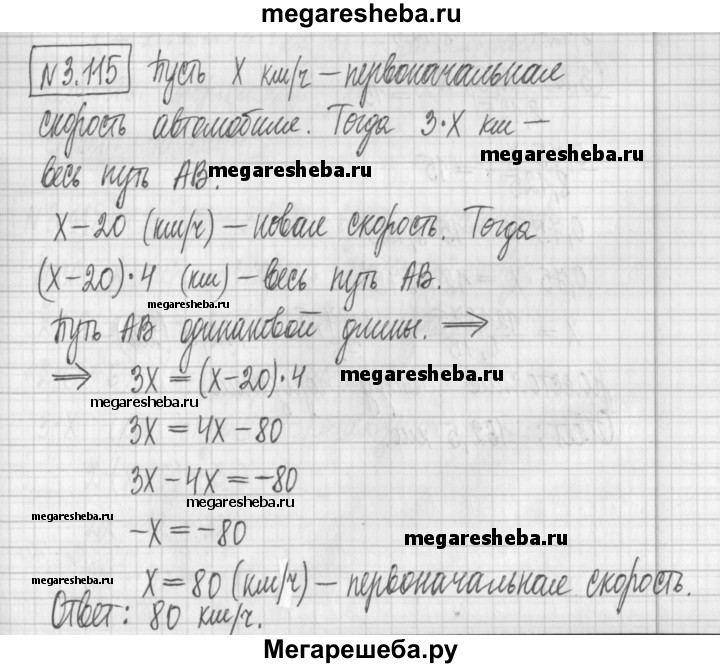 megaresheba.ru
N 3.115 Пусть X км/ч – первоначальная
скорость автомобиля. Тогда 3·X км –
megaresheba.ru
весь путь AB.
megaresheba.ru
X – 20 (км/ч) – новая скорость. Тогда
(X – 20)·4 (км) – весь путь AB.
megaresheba.ru
Путь AB одинаковой длины. ⇒
⇒ 3X = (X – 20)·4
megaresheba.ru
megaresheba.ru
3X = 4X – 80
3X – 4X = –80
megaresheba.ru
megaresheba.ru
–X = –80
megaresheba.ru
megaresheba.ru
X = 80 (км/ч) – первоначальная скорость.
Ответ: 80 км/ч.
Мегарешеба.ру